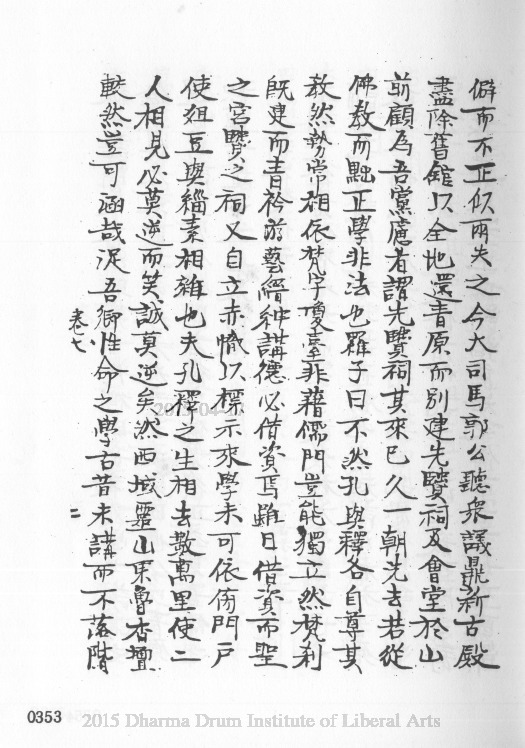 僻而不正似兩失之今大司馬郭公聽衆議鼎新古殿
盡除舊館以全地還青原而別建先賢祠及會堂於山
前顧為吾黨慮者謂先賢祠其來已久一朝先去若從
佛教而黜正學非法也羅子曰不然孔與釋各自尊其
教然勢常相依梵宇瓊臺非藉儒門豈能獨立然梵刹
既建而青衿游藝縉紳講德必借資焉雖曰借資而聖
之宮賢之祠又自立赤幟以標示來學未可依傍門戶
使俎豆與緇素相雜也夫孔釋之生相去數萬里使二
人相見必莫逆而笑誠莫逆矣然西域靈山東魯杏壇
較然豈可函哉況吾鄉性命之學古昔未講而不落階
卷七
二
2015-04-27
0353
2015 Dharma Drum Institute of Liberal Arts